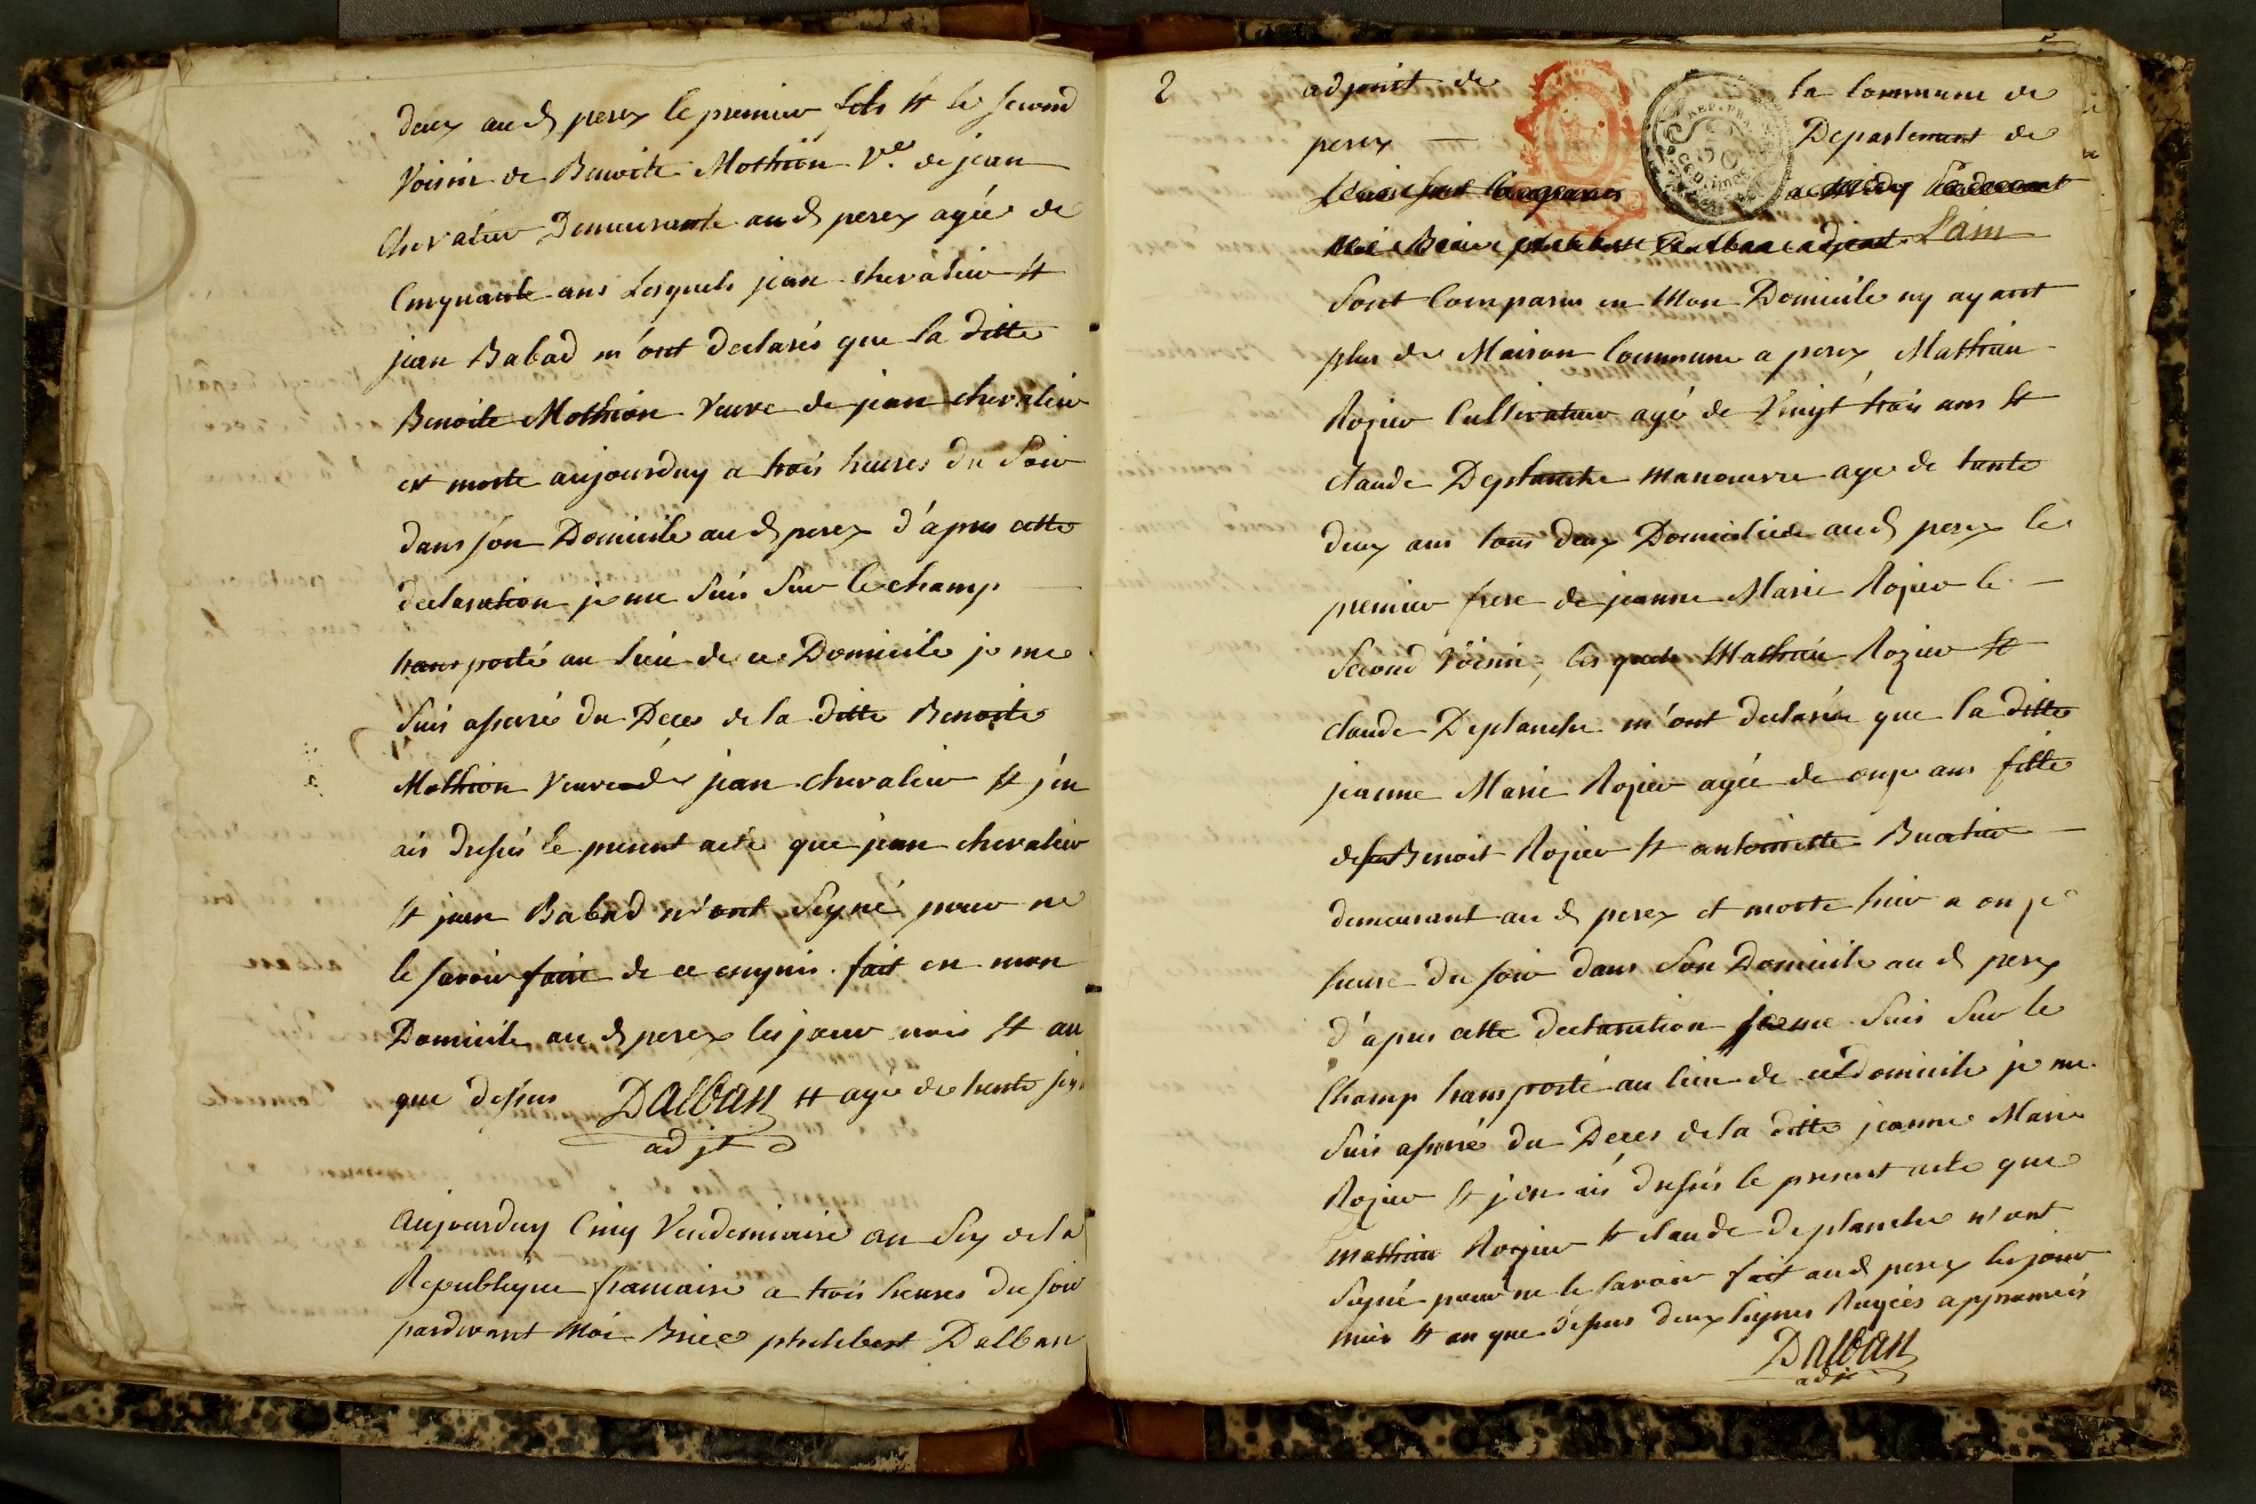 deux aud perex le premier fils et le second
Voisin de Benoite Mothion Ve. de jean
chevalier Demeurante aud perex agée de
Cinquante ans Lesquels jean chevalier et
jean Babad m'ont declarés que la ditte
Benoite Mothion Veuve de jean chevalier
est morte aujourduy a trois heures du Soir
dans son Domicile aud perex d'apres cette
declaration je me Suis Sur le champ
transporté au lieu de ce Domicile je me
Suis assuré du Deces de la ditte Benoite
Mothion Veuve de jean chevalier et j'en
ais dressés le present acte que jean chevalier
et jean Babad n'ont Signé pour ne
le savoir faire de ce enquis. fait en mon
Domicile aud perex les jour mois et an
que dessus Dalban et agé de trente six
adjt
Aujourduy Cinq Vendemiaire an Six de la
Republique francaise a trois heures du soir
pardevant Moi Brice philibert Dalban
2 adjoint de la Commune de
perex — Departement de
Lain
Sont Comparus en Mon Domicile ny ayant
plus de Maison Commune a perex Mathieu
Rozier Cultivateur agé de Vingt trois ans et
claude Deplanche manoeuvre age de trante
deux ans tous deux Domiciliés aud perex le
premier frere de jeanne Marie Rozier le —
Second Voisin, les quels Mathieu Rozier et
claude Deplanche m'ont declarés que la ditte
jeanne Marie Rozier agée de onze ans fille
de feu Benoit Rozier et antoinette —
demeurant aud perex et morte hier a onze
heure du soir dans Son Domicile aud perex
d'apres cette declaration je me Suis Sur le
Champ transporté au lieu de ce Domicile je me
Suis assuré du Deces de la ditte jeanne Marie
Rozier et j'en ais dressés le present acte que
mathieu Rozier et claude deplanche n'ont
Signé pour ne le savoir fait aud perex les jour
mois et an que dessus deux lignes Rayées approuvés
Dalban
adjt